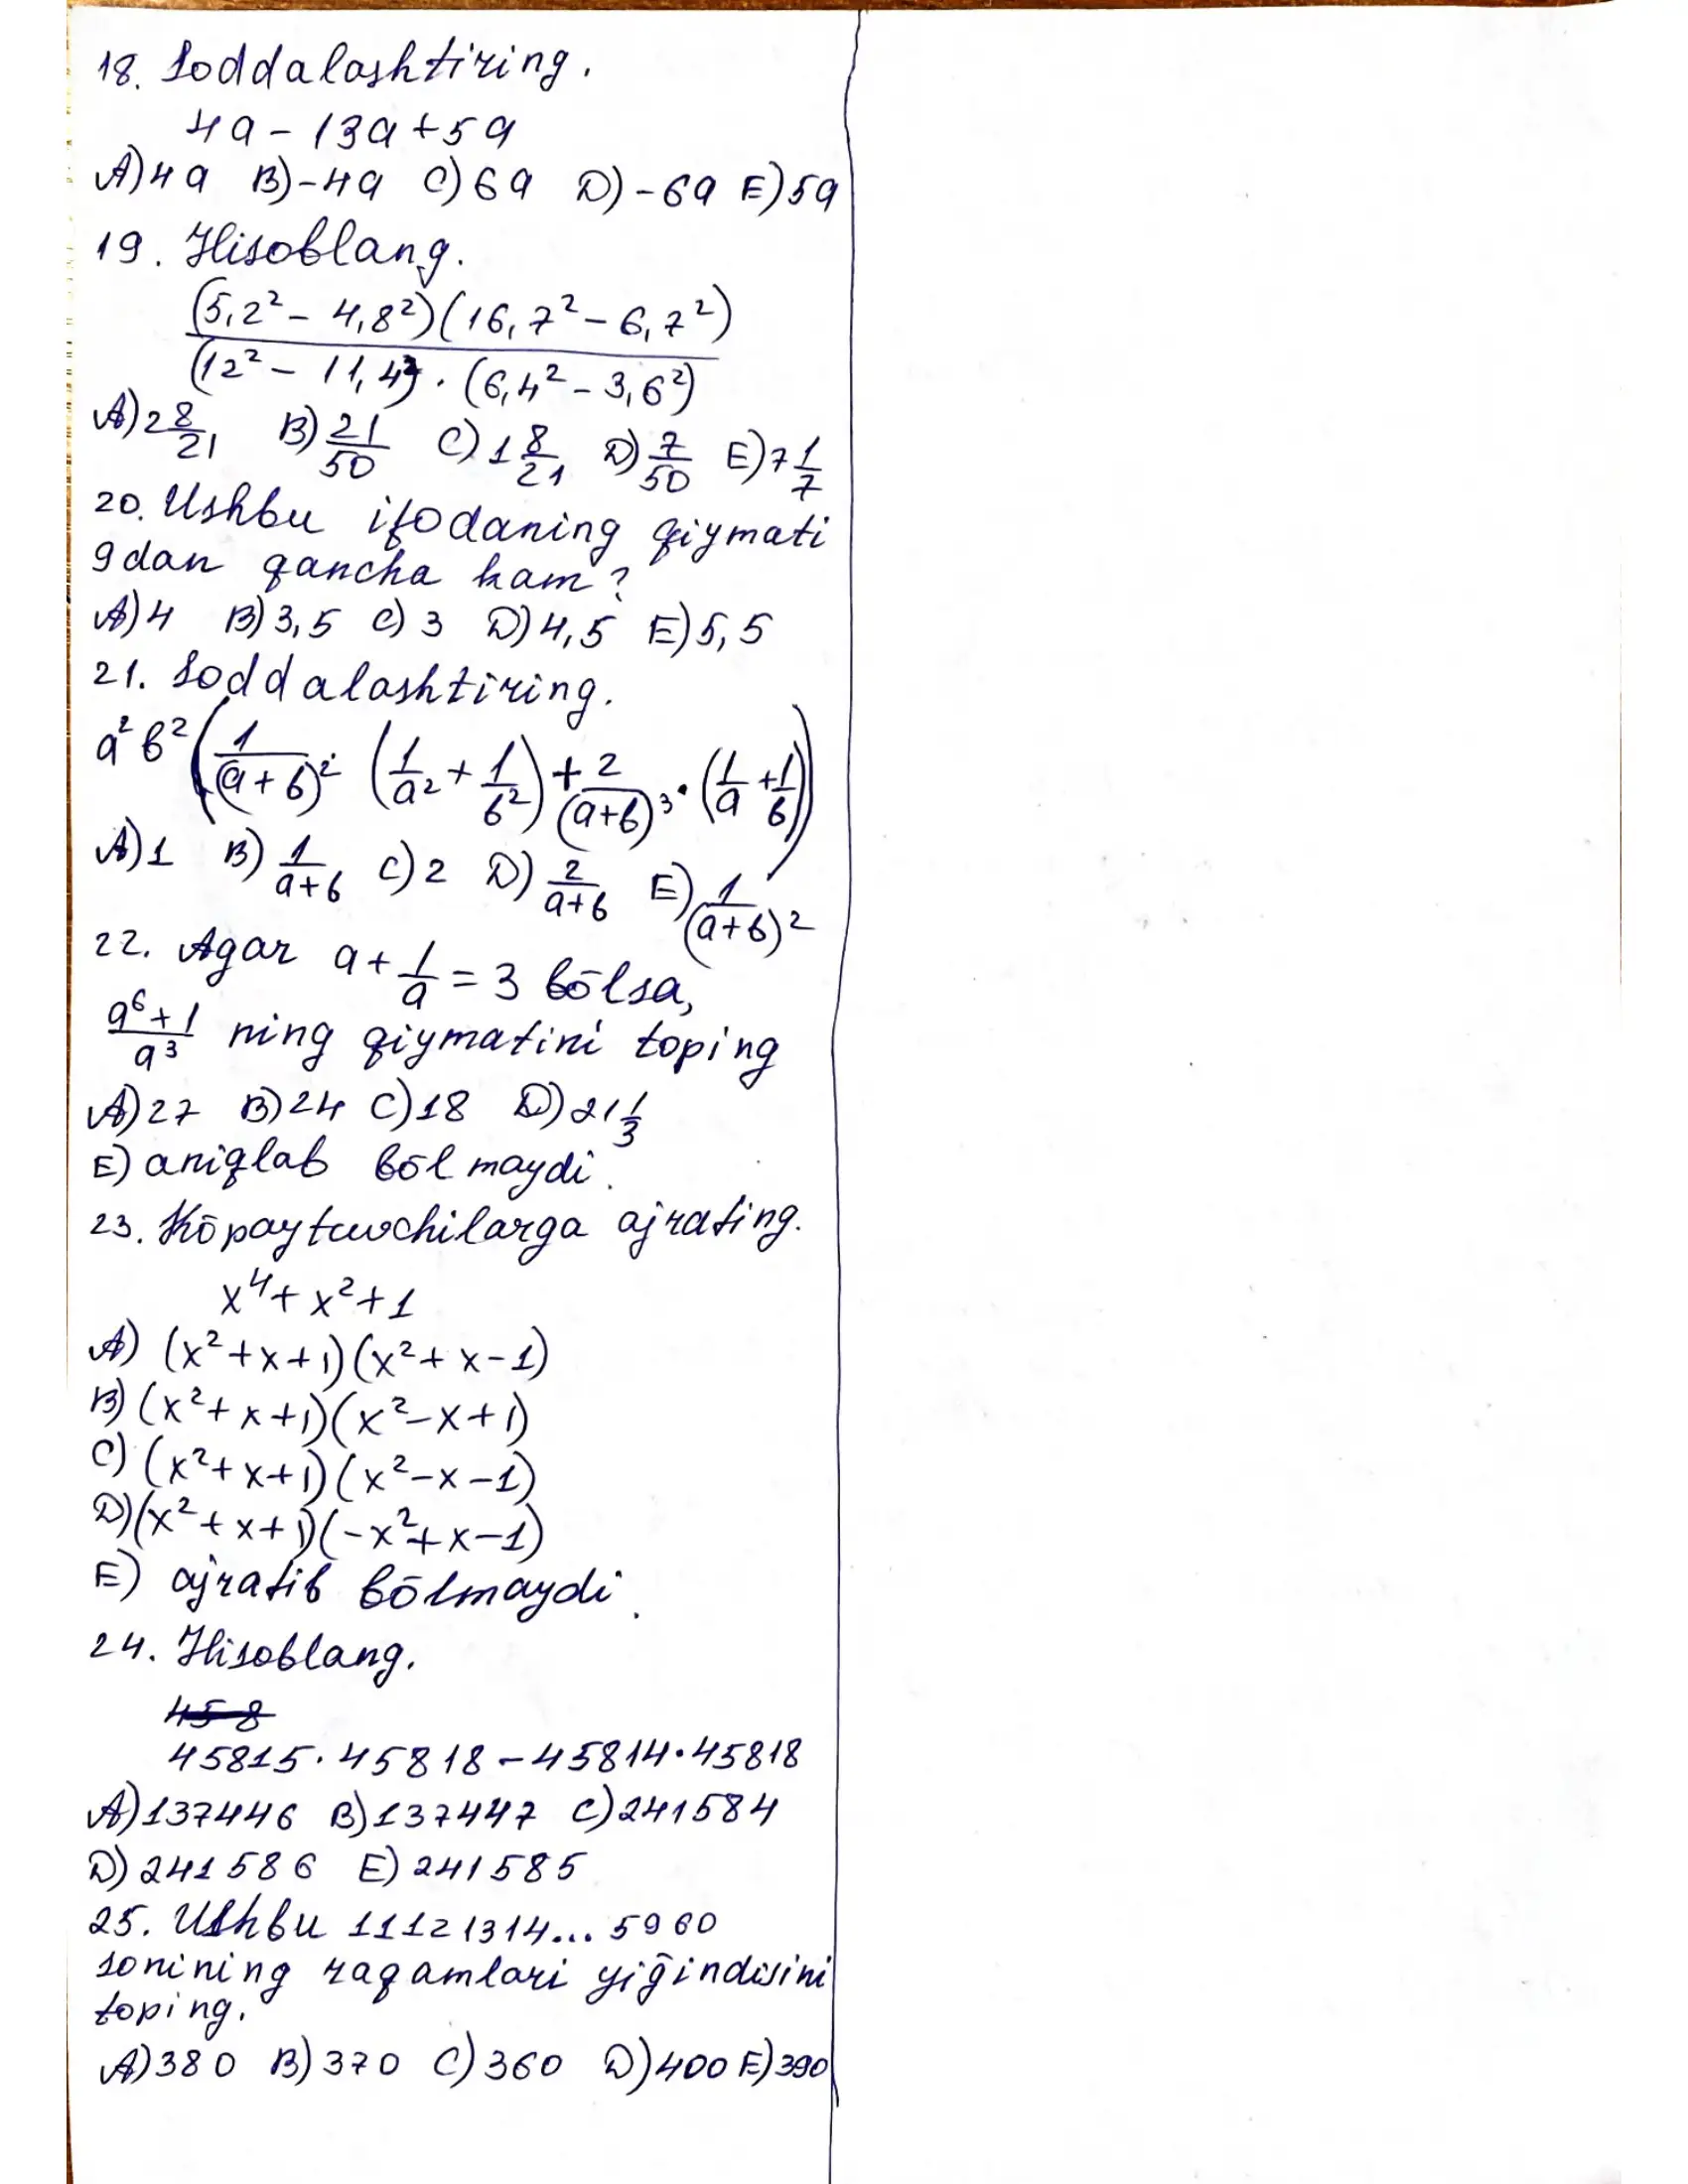 18. Soddalashtiring.
4a - 13a + 5a
A) 4a B) -4a C) 6a D) -6a E) 5a
19. Hisoblang.
(5,2² - 4,8²)(16,7² - 6,7²)
(12² - 11,4²) · (6,4² - 3,6²)
A) 2 8/21 B) 21/50 C) 1 8/21 D) 7/50 E) 7 1/7
20. Ushbu ifodaning qiymati
9 dan qancha kam?
A) 4 B) 3,5 C) 3 D) 4,5 E) 5,5
21. Soddalashtiring.
a²b²(1/(a+b)² · (1/a² + 1/b²) + 2/(a+b)³ · (1/a + 1/b))
A) 1 B) 1/(a+b) C) 2 D) 2/(a+b) E) 1/(a+b)²
22. Agar a + 1/a = 3 bōlsa,
(a⁶+1)/a³ ning qiymatini toping
A) 27 B) 24 C) 18 D) 21 1/3
E) aniqlab bōlmaydi.
23. Kōpaytuvchilarga ajrating.
x⁴ + x² + 1
A) (x² + x + 1)(x² + x - 1)
B) (x² + x + 1)(x² - x + 1)
C) (x² + x + 1)(x² - x - 1)
D) (x² + x + 1)(-x² + x - 1)
E) ajratib bōlmaydi.
24. Hisoblang.
45 8
45815 · 45818 - 45814 · 45818
A) 137446 B) 137447 C) 241584
D) 241586 E) 241585
25. Ushbu 11121314... 5960
sonining raqamlari yiḡindisini
toping.
A) 380 B) 370 C) 360 D) 400 E) 390